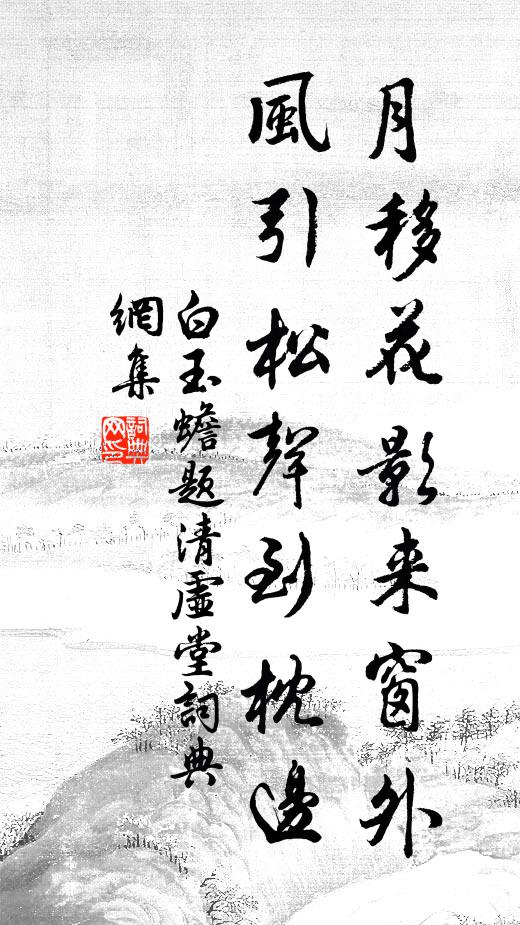 月移花影来窗外
風引松聲到枕邊
白玉蟾题清虛堂詞典
網集
詞典
网印